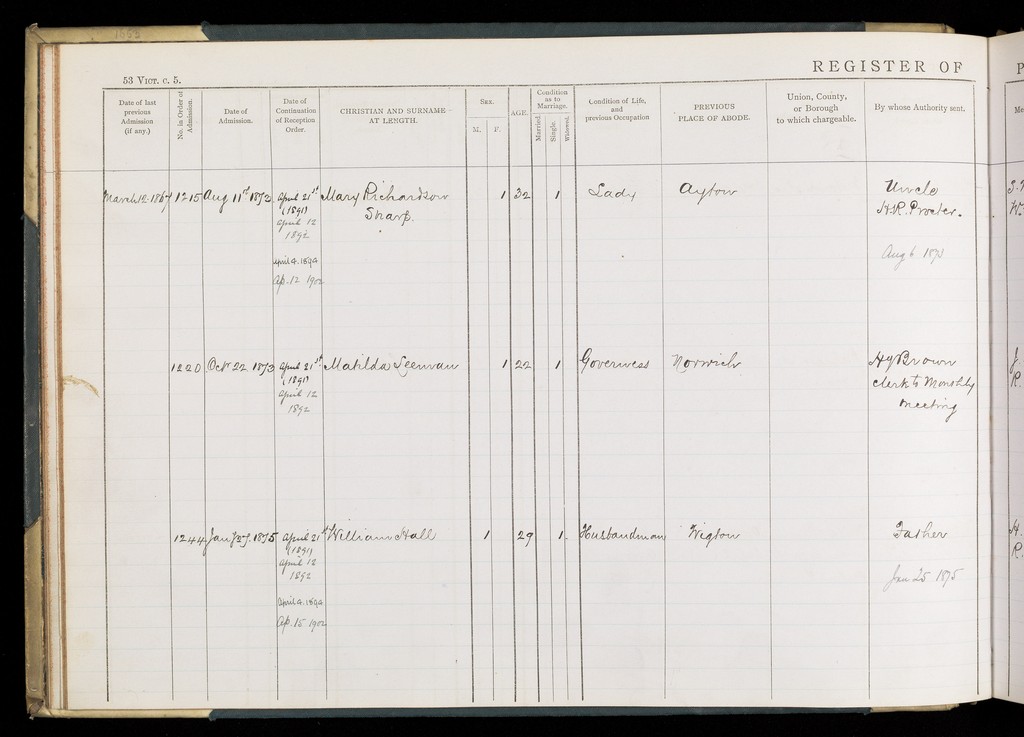 1663
53 Vict. c. 5.
REGISTER OF
Date of last previous Admission (if any.)
No. in Order of Admission.
Date of Admission.
Date of Continuation of Reception Order.
CHRISTIAN AND SURNAME AT LENGTH.
Sex.
M. F.
AGE.
Condition as to Marriage.
Married. Single. Widowed.
Condition of Life, and previous Occupation
PREVIOUS PLACE OF ABODE.
Union, County, or Borough to which chargeable.
By whose Authority sent.
March 12. 1867 1215 Aug 11th 1873 April 21st Mary Richardson 1 32 1 Lady Ayton Uncle
(1891) Sharp. H.R. Procter.
April 12
1892
Aug 6 1873
April 4. 1894
Ap. 12 1902
1220 Oct 22 1873 April 21st Matilda 1 22 1 Governess Norwich Hy Brown
(1891) Clerk to Monthly
April 12 Meeting
1892
1244 Jan 1875 April 21st William Hall 1 29 1 Husbandman Wigton Father
(1891)
April 12
1892 Jan 25 1875
April 4. 1894
Ap. 15 1902